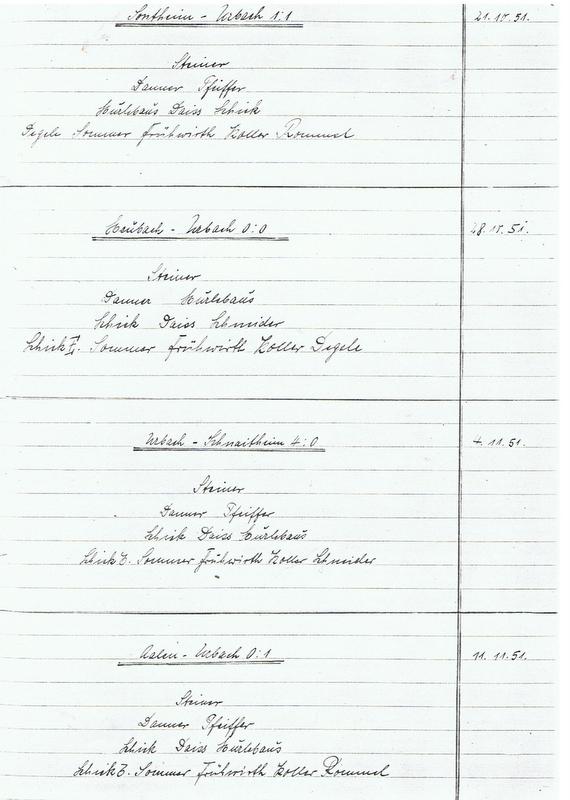 Sontheim - Urbach 1:1 21.10.51.
Steiner
Danner Pfeiffer
Hurlebaus Daiss Schick
Degele Sommer Frühwirth Koller Rommel
Heubach - Urbach 0:0 28.10.51.
Steiner
Danner Hurlebaus
Schick Daiss Schneider
Schick F. Sommer Frühwirth Koller Degele
Urbach - Schnaitheim 4:0 4.11.51.
Steiner
Danner Pfeiffer
Schick Daiss Hurlebaus
Schick E. Sommer Frühwirth Koller Schneider
Aalen - Urbach 0:1 11.11.51.
Steiner
Danner Pfeiffer
Schick Daiss Hurlebaus
Schick E. Sommer Frühwirth Koller Rommel